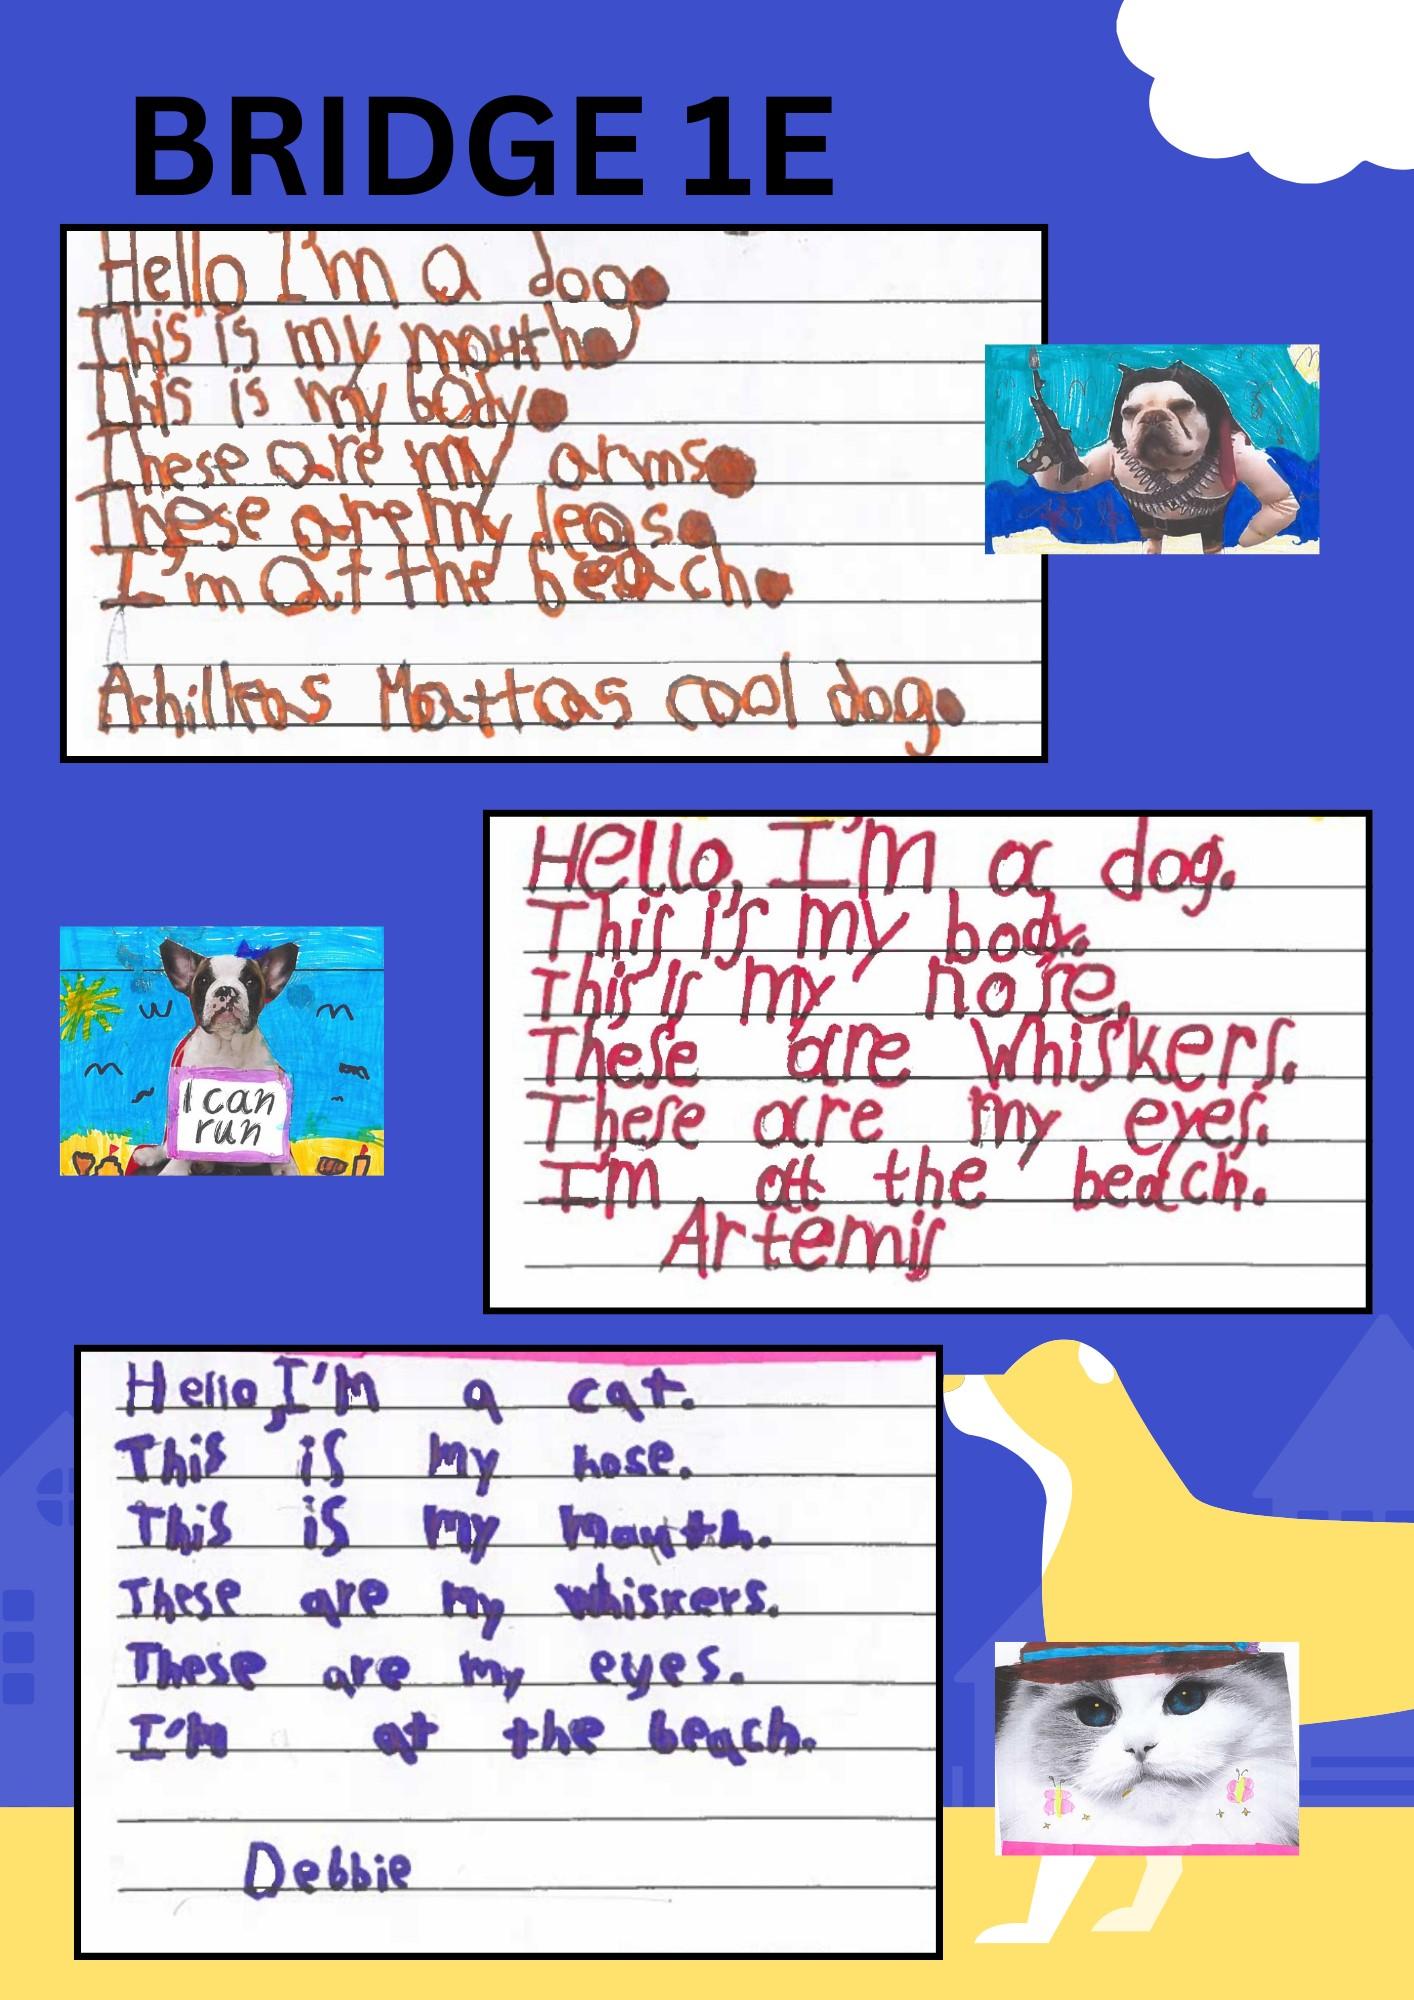 BRIDGE 1E
Hello I'm a dog.
This is my mouth.
This is my body.
These are my arms.
These are my legs.
I'm at the beach.
Achilleas Mattas cool dog.
Hello, I'm a dog.
This is my body.
This is my nose.
These are whiskers.
These are my eyes.
I'm at the beach.
Artemis
I can
run
Hello, I'm a cat.
This is my nose.
This is my mouth.
These are my whiskers.
These are my eyes.
I'm at the beach.
Debbie